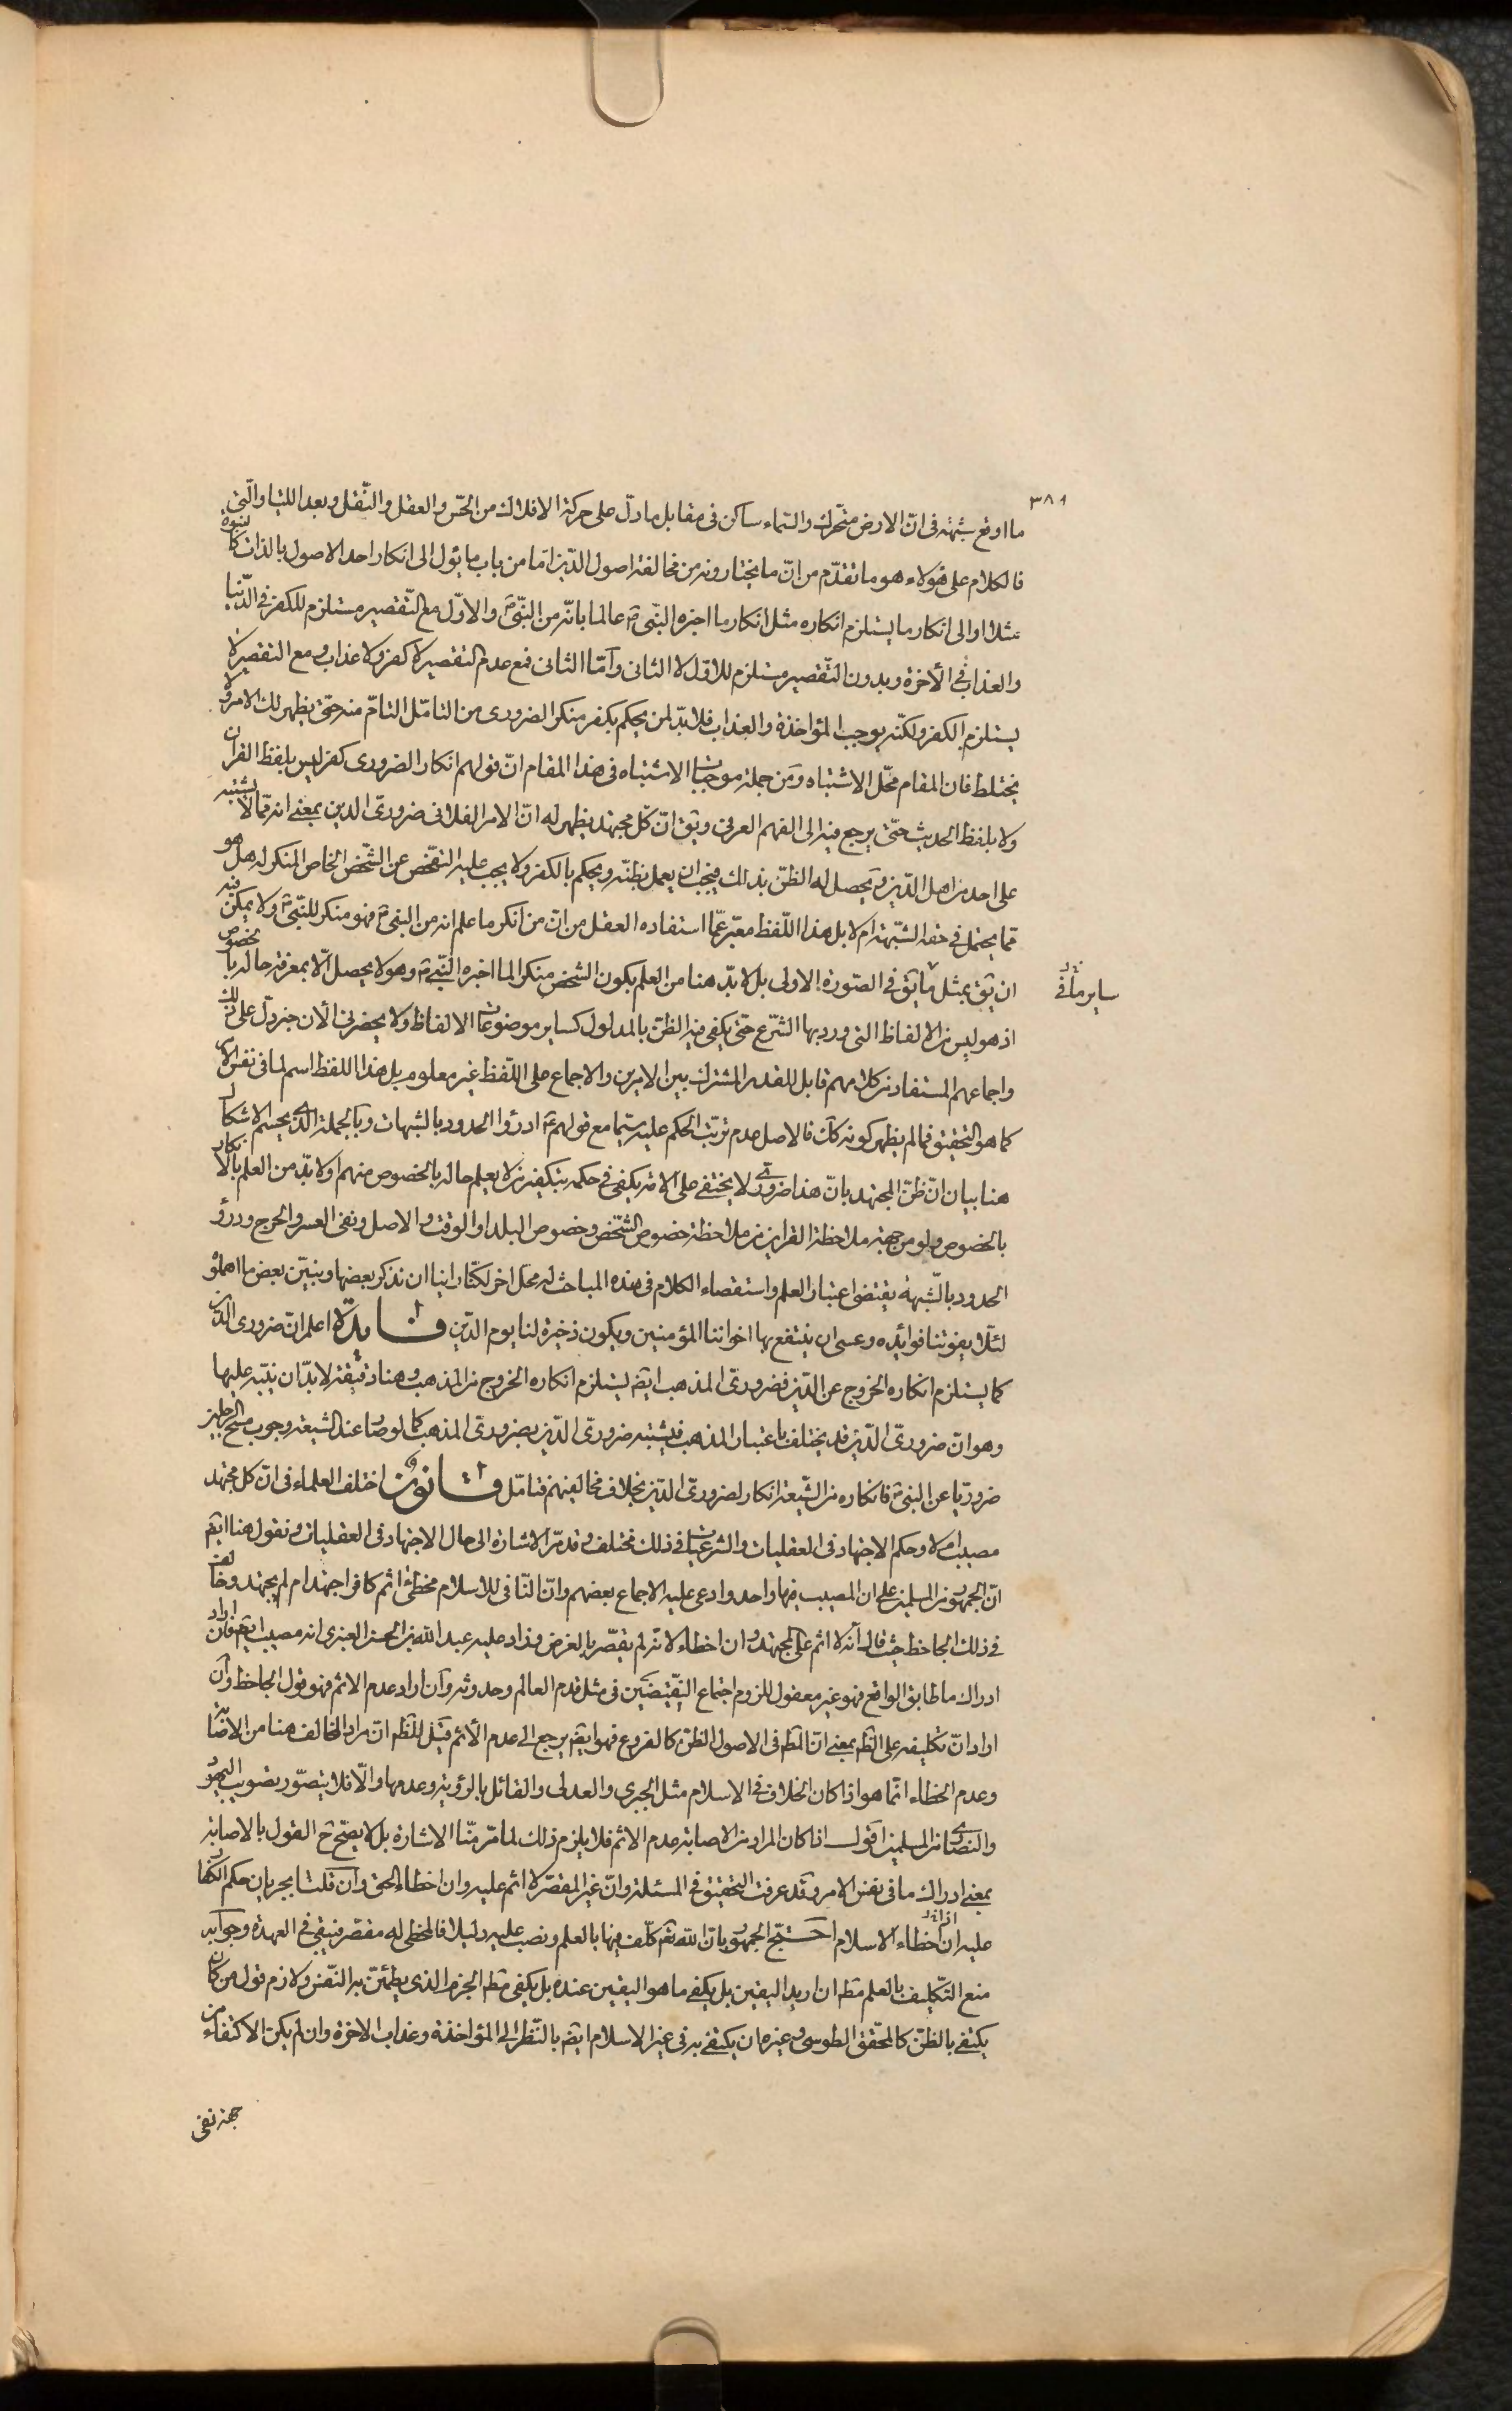 ٣٨١
ما اوقع شبهة فى انّ الارض متحّرك والسّماء ساكن فى مقابل ما دلّ على حركة الافلاك من الحّس والعقل والنّقل وبعد اللتيا والّتى
فالكلام على هؤلاء هو ما تقدّم من انّ ما يختارونه من مخالفة اصول الدّين امّا من باب ما يؤل الى انكار احد الاصول بالذات كالنبوة
مثلا او الى انكار ما يستلزم انكاره مثل انكار ما اخبره النّبى ص عالما بانّه من النبّى ص والاوّل مع التّقصير مستلزم للكفر فى الدّنيا
والعذاب فى الأخرة وبدون التّقصير مستلزم للاوّل لا الثانى وامّا الثانى فمع عدم التقصير لا كفر ولا عذاب ومع التقصير لا
يستلزم الكفر ولكنّه يوجب المؤاخذة والعذاب فلا بدّ لمن يحكم بكفر منكر الضرورى من التامّل التامّ منه حتى يظهر لك الامر ولا
يختلط فان المقام محّل الاشتباه ومن جملة موجبات الاشتباه فى هذا المقام انّ قولهم انكار الضرورى كفر ليس بلفظ القران
ولا بلفظ الحديث حتّى يرجع فيه الى الفهم العرفى ويق انّ كلّ مجتهد يظهر له انّ الامر الفلانى ضرورىّ الدين بمعنى انه ممّا لا يشتبه
على احد من اهل الدّين ويحصل له الظنّ بذلك فيجب ان يعمل بظنّه ويحكم بالكفر ولا يجب عليه التفحّص عن الشّخص الخاص المنكر له هل هو
ممّا يحتمل فى حقه الشبّهة ام لا بل هذا اللّفظ معبّر عمّا استفاده العقل من انّ من انكر ما علم انه من النبى ص فهو منكر للنّبى ص ولا يمكن فيه
ان يق بمثل ما يق فى الصّورة الاولى بل لا بدّ هنا من العلم بكون الشخص منكرا لما اخبره النّبى ص وهو لا يحصل الّا بمعرفة حاله بالخصوص
ساير ما فى
اذ هو ليس من الالفاظ التى ورد بها الشّرع حتى يكفى فيه الظن بالمدلول كساير موضوعات الالفاظ ولا يحضرنى الأن خبر دلّ على ذلك
واجماعهم المستفاد من كلامهم قابل للقدر المشترك بين الامرين والاجماع على اللّفظ غير معلوم بل هذا اللفظ اسم لما فى نفس الامر
كما هو التحقيق فما لم يظهر كونه كك فالاصل عدم ترتّب الحكم عليه سيّما مع قولهم ع ادرؤا الحدود بالشبهات وبالجملة الذى يحسم الاشكال
هنا بيان انّ ظنّ المجتهد بانّ هذا ضرورىّ لا يختفى على الامّة يكفى فى حكمه بتكفير من لا يعلم حاله بالخصوص منهم او لا بدّ من العلم بالانكار
بالخصوص ولو من جهة ملاحظة القراين من ملاحظة خصوص الشّخص وخصوص البلد او الوقت والاصل ونفى العسر والحرج ودرؤ
الحدود بالشّبهة يقتضى اعتبار العلم واستقصاء الكلام فى هذه المباحث له محّل اخر لكنّا راينا ان نذكر بعضها ونبيّن بعض ما اهملوه
لئلّا يفوتنا فوائده وعسى ان ينتفع بها اخواننا المؤمنين ويكون ذخيرة لنا يوم الدّين فايدة اعلم انّ ضرورى الدّين
كما يستلزم انكاره الخروج عن الدّين فضرورىّ المذهب ايضا يستلزم انكاره الخروج من المذهب وهنا دقيقة لا بدّ ان ينبّه عليها
وهو انّ ضرورىّ الدّين قد يختلف باعتبار المذهب فيشتبه ضرورىّ الدّين بضرورىّ المذهب كما لو صار عند الشيعة وجوب مسح الرجلين
ضروريّا عن النبى ص فانكاره من الشّيعة انكار لضرورىّ الدّين بخلاف مخالفيهم فتامّل قانون اختلف العلماء فى انّ كل مجتهد
مصيب ام لا وحكم الاجتهاد فى العقليات والشرعيات فى ذلك مختلف وقد مرّ الاشارة الى حال الاجتهاد فى العقليات ونقول هنا ايضا
انّ الجمهور من المسلمين على ان المصيب فيها واحد وادعى عليه الاجماع بعضهم وانّ النّافى للاسلام مخطئ اثم كافر اجتهد ام لم يجتهد وخالف
فى ذلك الجاحظ حيث قال انّه لا اثم على المجتهد وان اخطاء لانّه لم يقصّر بالفرض وزاد عليه عبد الله بن الحسن العنبرى انه مصيب ايضا فان اراد
ادراك ما طابق الواقع فهو غير معقول للزوم اجتماع النّقيضين فى مثل قدم العالم وحدوثه وان اراد عدم الاثم فهو قول الجاحظ وان
اراد انّ تكليفه على الظن بمعنى انّ الظن فى الاصول الظن كالفروع فهو ايضا يرجع الى عدم الأثم قيل الظ انّ مراد المخالف هنا من الاصابة
وعدم الخطاء انّما هو اذا كان الخلاف فى الاسلام مثل الجبرى والعدلى والقائل بالرؤية وعدمها والّا فلا يتصّور تصويب اليهود
والنصارى من المسلمين اقول اذا كان المراد من الاصابة عدم الاثم فلا يلزم ذلك لما مرّ منّا الاشارة بل لا يصّح ح القول بالاصابة
بمعنى ادراك ما فى نفس الامر وقد عرفت التحقيق فى المسئلة وانّ غير المقصّر لا اثم عليه وان اخطاء الحق وان قلنا بجريان حكم الكفار
عليه ان اخطاء الاسلام احتجّ الجمهور بانّ الله تعا كلّف فيها بالعلم ونصب عليه دليلا فالمخطى له مقصّر فيبقى فى العهدة وجوابه
منع التّكليف بالعلم مط ان اريد اليقين بل يكفى ما هو اليقين عنده بل يكفى مط الجزم الذى يطمئنّ به النّفس ولازم قول من كان
يكتفى بالظنّ كالمحّقق الطوسى وغيره ان يكتفى به فى غير الاسلام ايضا بالنّظر الى المؤاخذة وعذاب الاخرة وان لم يكن الاكتفاء من
جهة نفى